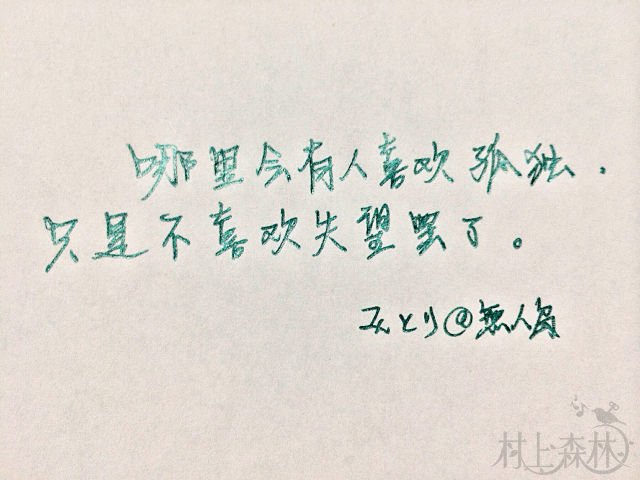 哪里会有人喜欢孤独.
只是不喜欢失望罢了。
みとり@無人島
村上森林